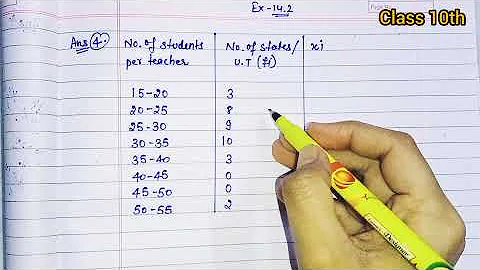 Ex-14.2
Class 10th
Ans 4. No. of students per teacher | No. of states/ U.T (fi) | xi
15-20 3
20-25 8
25-30 9
30-35 10
35-40 3
40-45 0
45-50 0
50-55 2